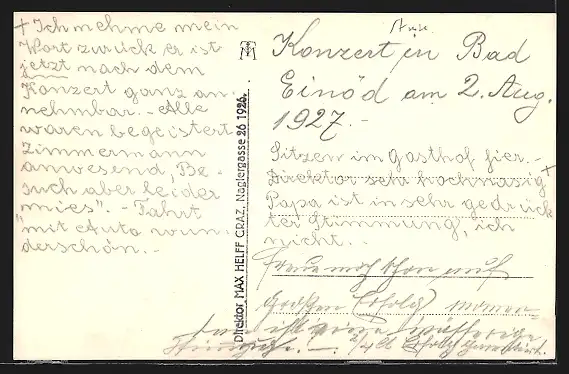 + Ich nehme mein
Wort zurück er ist
jetzt nach dem
Konzert ganz an-
nehmbar. - Alle
waren begeistert
Zimmermann
anwesend, Be-
such aber leider
"mies". - Fahrt
mit Auto wun-
derschön. -
Direktor MAX HELFF GRAZ, Naglergasse 26 1926.
Konzert in Bad
Einöd am 2. Aug.
1927. -
Sitzen im Gasthof hier. -
Direktor sehr hochnäsig +
Papa ist in sehr gedrück
ter Stimmung, ich
nicht. -
Freue mich schon auf
großen Erfolg